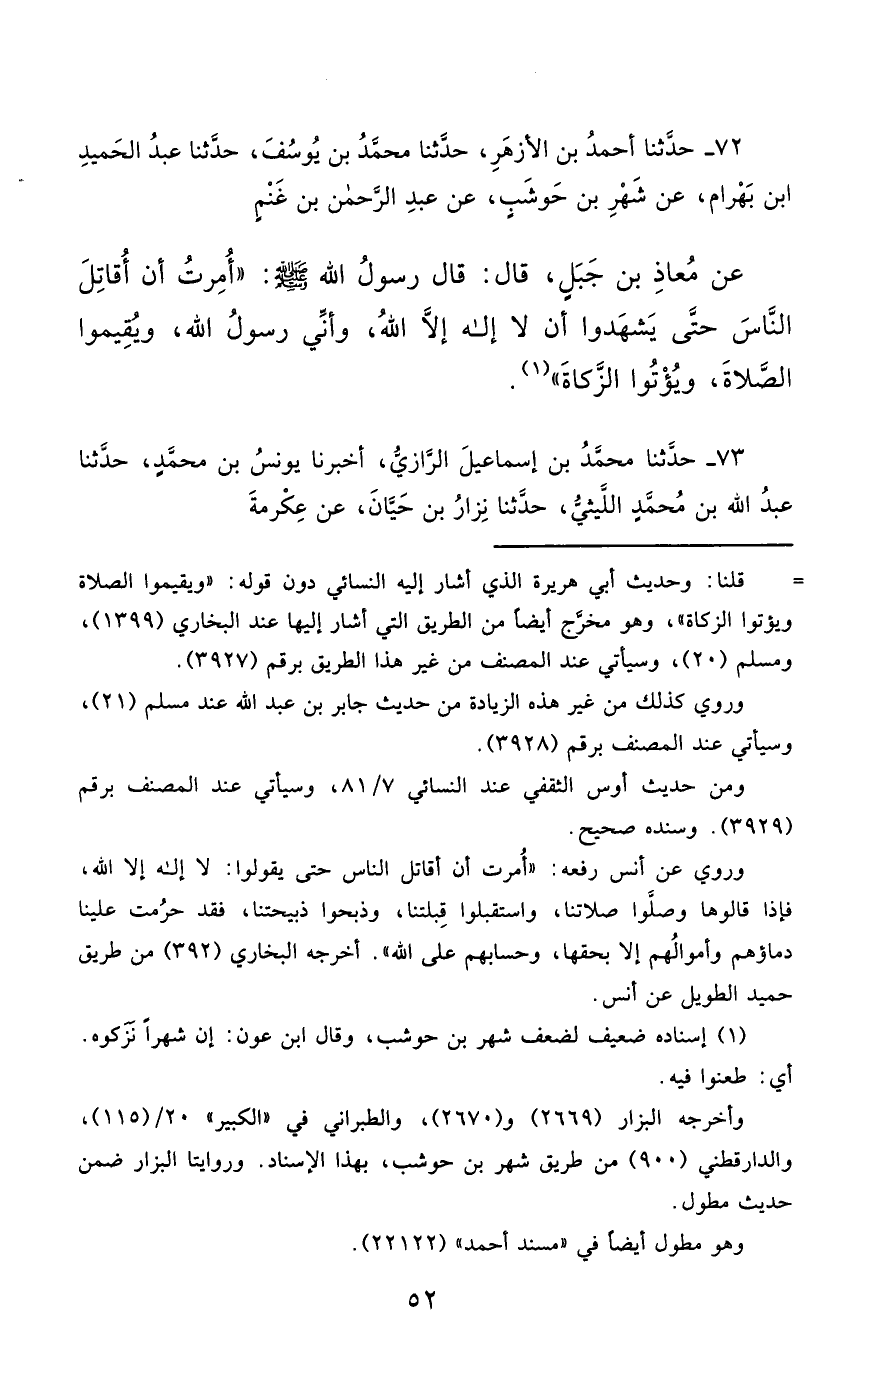 ٧٢ـ حدَّثنا أحمدُ بن الأزهَرِ، حدَّثنا محمَّدُ بن يُوسُفَ، حدَّثنا عبدُ الحَميدِ
ابن بَهْرام، عن شَهْرِ بن حَوشَبٍ، عن عبدِ الرَّحمٰن بن غَنْمٍ
عن مُعاذِ بن جَبَلٍ، قال: قال رسولُ الله ﷺ: «أُمِرتُ أن أُقاتِلَ
النَّاسَ حتَّى يَشهَدوا أن لا إلـٰه إلاَّ اللهُ، وأنِّي رسولُ الله، ويُقِيموا
الصَّلاةَ، ويُؤْتُوا الزَّكاةَ»(١).
٧٣ـ حدَّثنا محمَّدُ بن إسماعيلَ الرَّازيُّ، أخبرنا يونسُ بن محمَّدٍ، حدَّثنا
عبدُ الله بن مُحمَّدٍ اللَّيثيُّ، حدَّثنا نِزارُ بن حَيَّانَ، عن عِكْرمةَ
= قلنا: وحديث أبي هريرة الذي أشار إليه النسائي دون قوله: «ويقيموا الصلاة
ويؤتوا الزكاة»، وهو مخرَّج أيضاً من الطريق التي أشار إليها عند البخاري (١٣٩٩)،
ومسلم (٢٠)، وسيأتي عند المصنف من غير هذا الطريق برقم (٣٩٢٧).
وروي كذلك من غير هذه الزيادة من حديث جابر بن عبد الله عند مسلم (٢١)،
وسيأتي عند المصنف برقم (٣٩٢٨).
ومن حديث أوس الثقفي عند النسائي ٨١/٧، وسيأتي عند المصنف برقم
(٣٩٢٩). وسنده صحيح.
وروي عن أنس رفعه: «أُمرت أن أقاتل الناس حتى يقولوا: لا إلـٰه إلا الله،
فإذا قالوها وصلَّوا صلاتنا، واستقبلوا قِبلتنا، وذبحوا ذبيحتنا، فقد حرُمت علينا
دماؤهم وأموالُهم إلا بحقها، وحسابهم على الله». أخرجه البخاري (٣٩٢) من طريق
حميد الطويل عن أنس.
(١) إسناده ضعيف لضعف شهر بن حوشب، وقال ابن عون: إن شهراً نَزَكوه.
أي: طعنوا فيه.
وأخرجه البزار (٢٦٦٩) و(٢٦٧٠)، والطبراني في «الكبير» ٢٠/(١١٥)،
والدارقطني (٩٠٠) من طريق شهر بن حوشب، بهذا الإسناد. وروايتا البزار ضمن
حديث مطول.
وهو مطول أيضاً في «مسند أحمد» (٢٢١٢٢).
٥٢